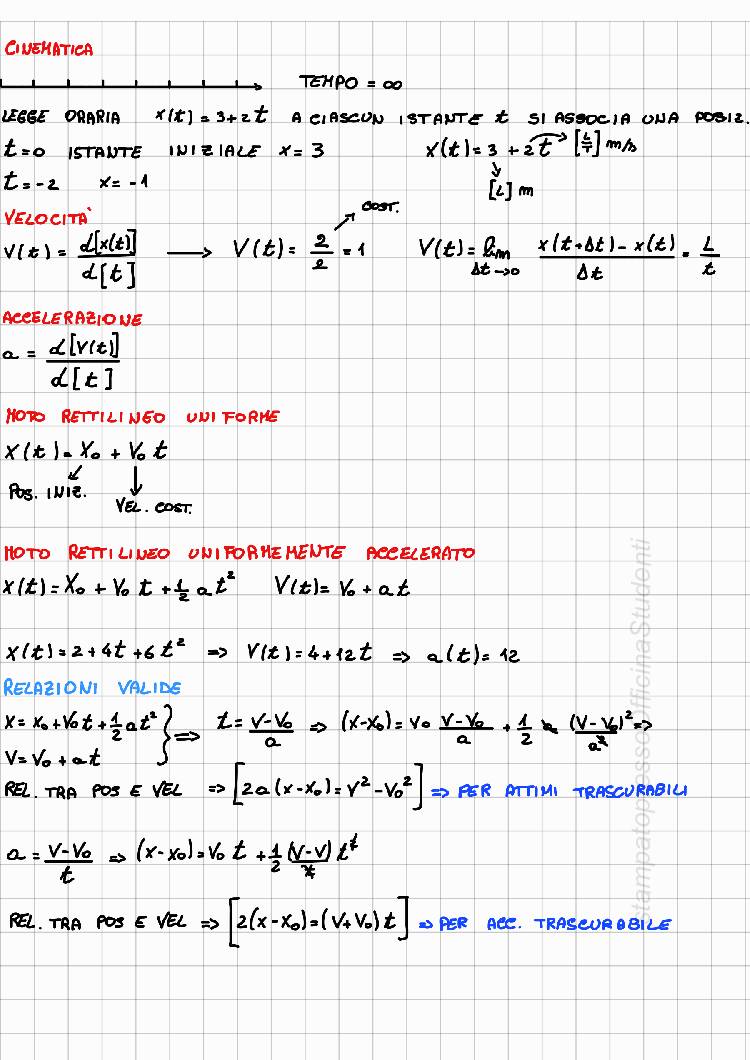 CINEMATICA
TEMPO = ∞
LEGGE ORARIA x(t) = 3+2t A CIASCUN ISTANTE t SI ASSOCIA UNA POSIZ.
t=0 ISTANTE INIZIALE x = 3 x(t) = 3 + 2t → [L/T] m/s
[L] m
t = -2 x = -1
VELOCITÀ
COST.
V(t) = d[x(t)]/d[t] → V(t) = 2/2 = 1 V(t) = lim Δt→0 x(t+Δt) - x(t)/Δt = L/t
ACCELERAZIONE
a = d[V(t)]/d[t]
MOTO RETTILINEO UNIFORME
x(t) = X₀ + V₀ t
POS. INIZ.
VEL. COST.
MOTO RETTILINEO UNIFORMEMENTE ACCELERATO
x(t) = X₀ + V₀ t + 1/2 a t² V(t) = V₀ + a t
x(t) = 2+4t+6t² ⇒ V(t) = 4+12t ⇒ a(t) = 12
RELAZIONI VALIDE
x = x₀+V₀t+1/2 a t² } ⇒ t = V-V₀/a ⇒ (x-x₀) = V₀ V-V₀/a + 1/2 a (V-V₀)²/a² ⇒
V = V₀ + at
REL. TRA POS E VEL ⇒ [2a(x-x₀) = V² - V₀²] ⇒ PER ATTIMI TRASCURABILI
a = V-V₀/t ⇒ (x-x₀) = V₀ t + 1/2 (V-V)/t t²
REL. TRA POS E VEL ⇒ [2(x-x₀) = (V+V₀) t] ⇒ PER ACC. TRASCURABILE
StampatopressoOfficinaStudenti